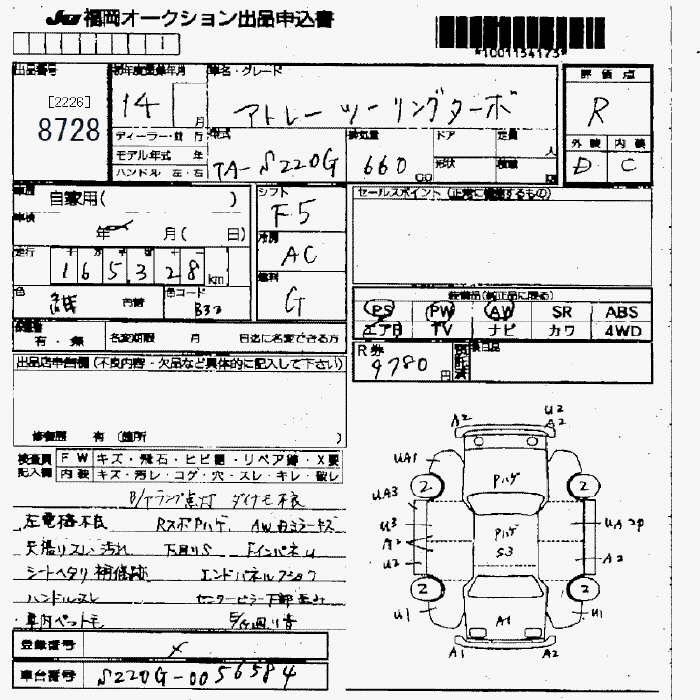 JU福岡オークション出品申込書
*1001154173*
出品番号
[2226]
8728
初年度登録年月
14 月
ディーラー・並行
モデル年式 年
ハンドル 左・右
車名・グレード
アトレーツーリングターボ
型式
TA-S220G
排気量
660
CC
ドア
形状
定員
人
積載
評価点
R
外装 内装
D C
車歴
自家用( )
車検
年 月( 日)
走行
165328 km
色
色コード
B32
シフト
F5
冷房
AC
燃料
G
セールスポイント(正常に機能するもの)
装備品(純正品に限る)
PS PW AW SR ABS
エアB TV ナビ カワ 4WD
有・無
名変期限 月 日迄に名変できる方
R券
9780円
後日品
出品店申告欄(不良内容・欠品など具体的に記入して下さい)
修復歴 有(箇所 )
検査員
記入欄
FW キズ・飛石・ヒビ割・リペア跡・X要
内装 キズ・汚レ・コゲ・穴・スレ・キレ・破レ
B/Tランプ点灯 ダイナモ不良
左電格不良 RスポPハゲ、 AW 右ミラーキズ
天張リスレ・汚れ 下回りS FインパネU
シートヘタリ 補修跡 エンドパネルフック
ハンドルスレ センターピラー下部歪み
車内ペットモ 足回り音
登録番号
車台番号 S220G-0056584
A2
U2
A2
UA1
Pハゲ
2
2
UA3
U3
A2
U2
Pハゲ
S3
UA2P
A2
2
2
U1
U1
A1
A1
A2